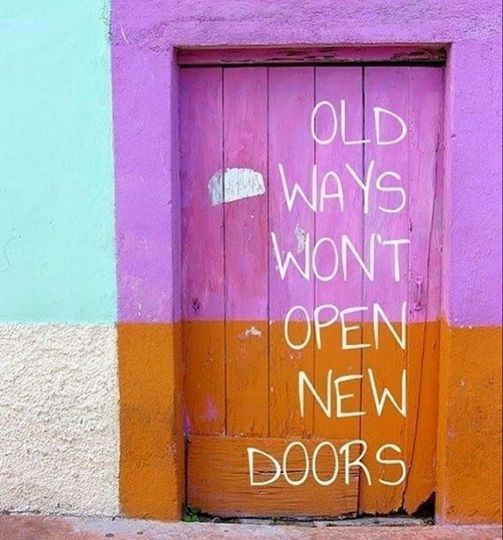 OLD
WAYS
WON'T
OPEN
NEW
DOORS